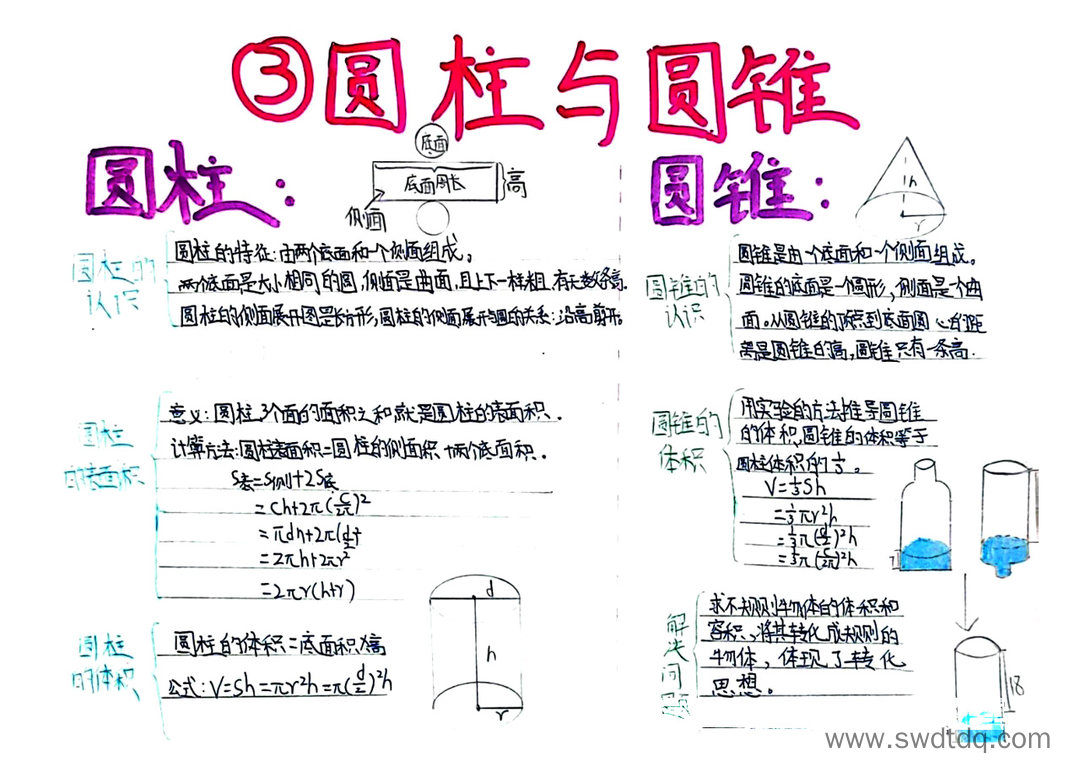 ③圆柱与圆锥
圆柱：
底面
底面周长
高
侧面
圆柱的
认识
圆柱的特征：由两个底面和一个侧面组成，
两个底面是大小相同的圆，侧面是曲面，且上下一样粗，有无数条高．
圆柱的侧面展开图是长方形，圆柱的侧面展开与圆的关系：沿高剪开．
圆柱
的表面积
意义：圆柱3个面的面积之和就是圆柱的表面积．
计算方法：圆柱表面积=圆柱的侧面积+两个底面积．
S表=S侧+2S底
=Ch+2π(C/2π)²
=πdh+2π(d/2
=2πh+2πr²
=2πr(h+r)
圆柱
的体积
圆柱的体积=底面积×高
公式：V=Sh=πr²h=π(d/2)²h
d
h
r
圆锥：
h
r
圆锥的
认识
圆锥是由一个底面和一个侧面组成。
圆锥的底面是一个圆形，侧面是个曲
面。从圆锥的顶点到底面圆心的距
离是圆锥的高，圆锥只有一条高．
圆锥的
体积
用实验的方法推导圆锥
的体积，圆锥的体积等于
圆柱体积的1/3。
V=1/3Sh
=1/3πr²h
=1/3π(d/2)²h
=1/3π(C/2π)²h
解决问题
求不规则物体的体积和
容积，将其转化成规则的
物体，体现了转化
思想。
18
www.swdtdq.com